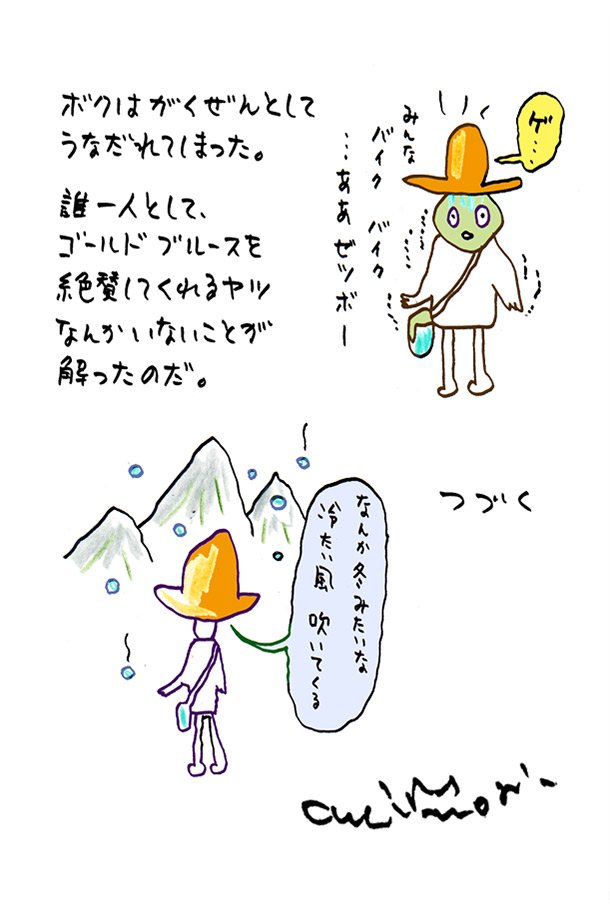 ボクはがくぜんとして
うなだれてしまった。
誰一人として、
ゴールドブルースを
絶賛してくれるヤツ
なんかいないことが
解ったのだ。
ゲ…
みんな
バイク バイク
…ああゼツボー
なんか冬みたいな
冷たい風 吹いてくる
つづく